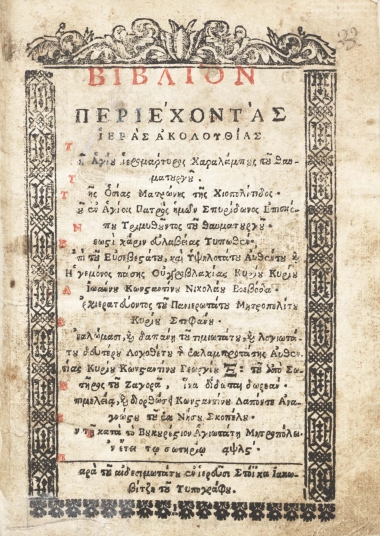 ΒΙΒΛΙΟΝ
ΠΕΡΙΕΧΟΝΤΑΣ
ΙΕΡΑΣ ΑΚΟΛΟΥΘΙΑΣ
Ἁγίου ἱερομάρτυρος Χαραλάμπους τοῦ θαυ-
ματουργοῦ.
τῆς ὁσίας Ματρώνης τῆς Χιοπολίτιδος.
ἐν Ἁγίοις Πατρὸς ἡμῶν Σπυρίδωνος Ἐπισκό-
που Τριμυθοῦντος τοῦ θαυματουργοῦ
χάριν εὐλαβείας Τυπωθεῖ
τοῦ Εὐσεβεστάτου, καὶ Ὑψηλοτάτου Αὐθέντου καὶ
Ηγεμόνος πάσης Οὐγγροβλαχίας Κυρίου Κυρίου
Ἰωάννου Κωνσταντίνου Νικολάου Βοεβόδα
ἀρχιερατεύοντος τοῦ Πανιερωτάτου Μητροπολίτου
Κυρίου Στεφάνου.
ἀναλώμασι, καὶ δαπάνῃ τοῦ τιμιωτάτου, καὶ λογιωτά-
του δευτέρου Λογοθέτου τῆς ἐκλαμπροτάτης Αὐθεν-
τίας Κυρίου Κωνσταντίνου Γεωργίου
τῆρος τοῦ Ζαγορᾶ, ἵνα δίδοται δωρεάν.
πιμελείᾳ, καὶ διορθώσει Κωνσταντίνου Δαπόντε Ἀνα-
γνώστου τοῦ ἐκ Νήσου Σκοπέλου
κατὰ τὸ Βουκουρέστιον Ἁγιωτάτῃ Μητροπόλει.
ἔτει τῷ σωτηρίῳ αψλς.
αρὰ τοῦ αἰδεσιμωτάτου ἐν ἱερεῦσι Στόϊκα Ἰακω-
βίτζε τοῦ Τυπογράφου.